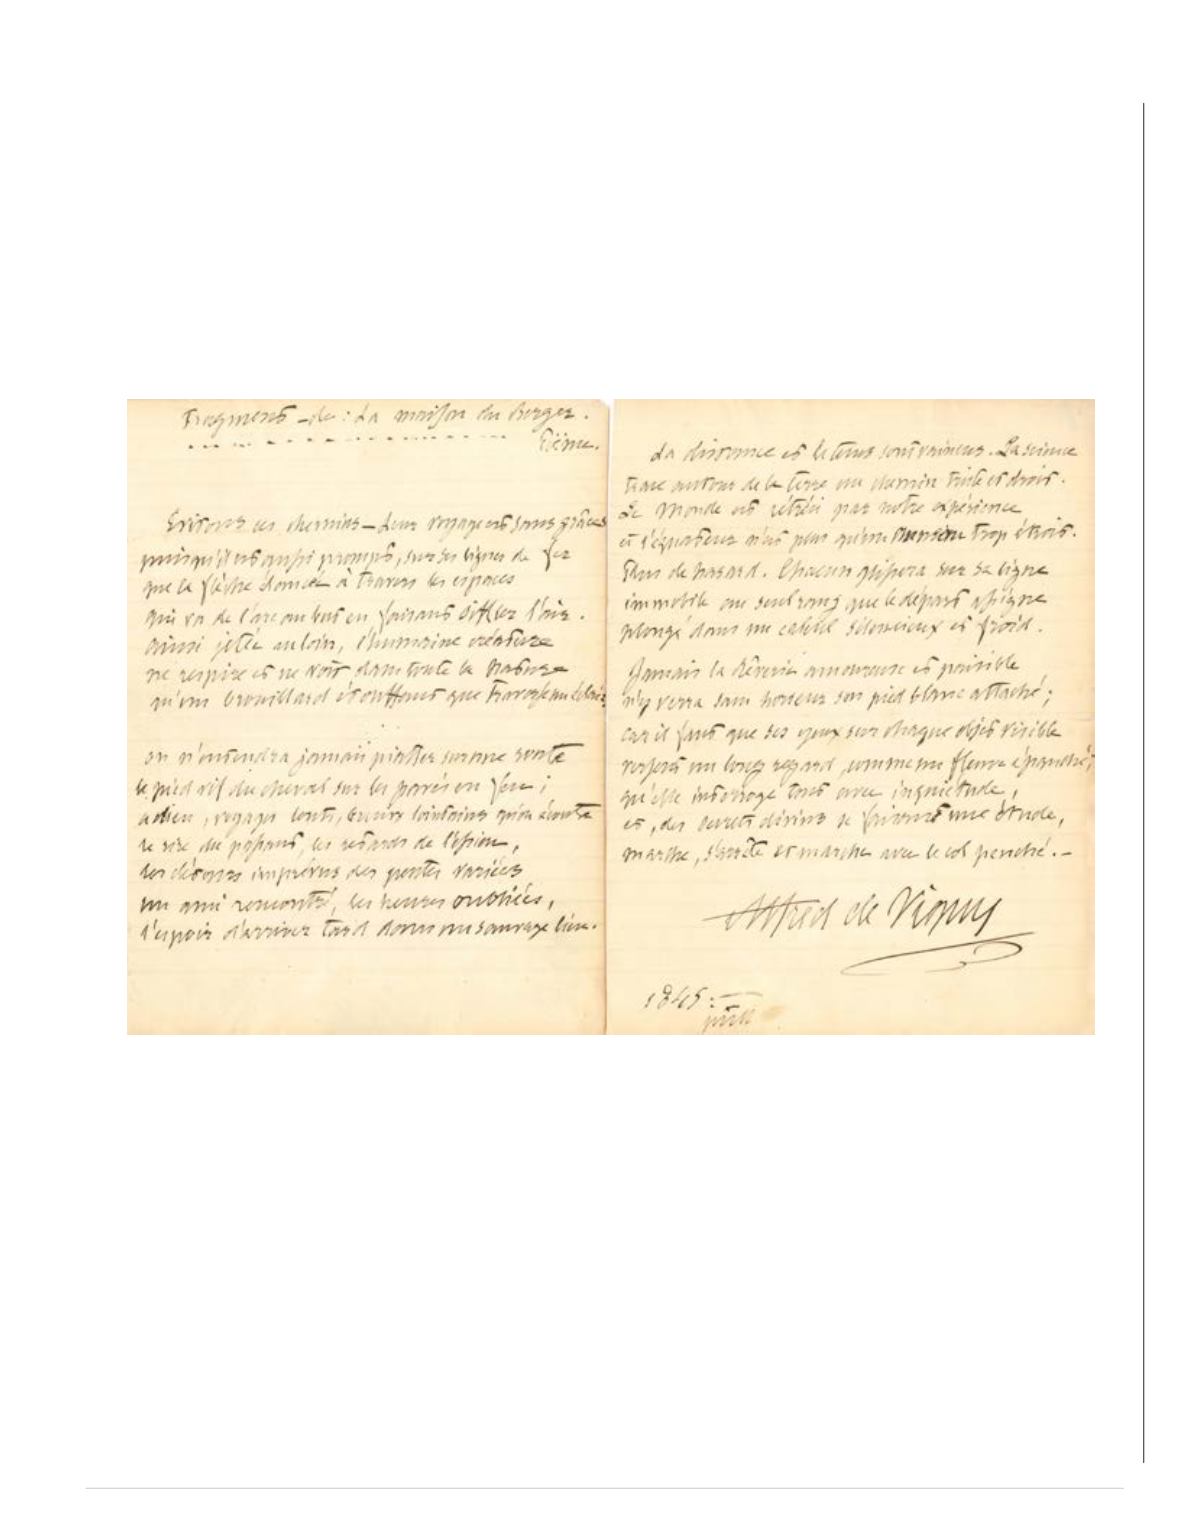 Fragment – de : La maison du Berger.
Poëme.
Evitons ces chemins – Leur voyage est sans grâces
puisqu'il est aussi prompt, sur ses lignes de fer
que la flèche élancée à travers les espaces
qui va de l'arc au but en faisant siffler l'air.
ainsi jetée au loin, l'humaine créature
ne respire et ne voit dans toute la nature
qu'un brouillard étouffant que traverse un éclair,
on n'entendra jamais piaffer sur une route
le pied vif du cheval sur les pavés en feu ;
adieu, voyages lents, bruits lointains qu'on écoute
le rire du passant, les retards de l'essieu,
les détours imprévus des pentes variées
un ami rencontré, les heures oubliées,
l'espoir d'arriver tard dans un sauvage lieu.
La distance et le tems sont vaincus. La science
trace autour de la terre un chemin triste et droit.
Le Monde est rétréci par notre expérience
et l'équateur n'est plus qu'un anneau trop étroit.
Plus de hasard. Chacun glissera sur sa ligne
immobile au seul rang que le départ assigne
plongé dans un calcul silencieux et froid.
Jamais la Rêverie amoureuse et paisible
n'y verra sans horreur son pied blanc attaché ;
car il faut que ses yeux sur chaque objet visible
versent un long regard, comme un fleuve épanché ;
qu'elle interroge tout avec inquiétude,
et, des secrets divins se faisant une étude,
marche, s'arrête et marche avec le col penché. –
Alfred de Vigny
1845 :